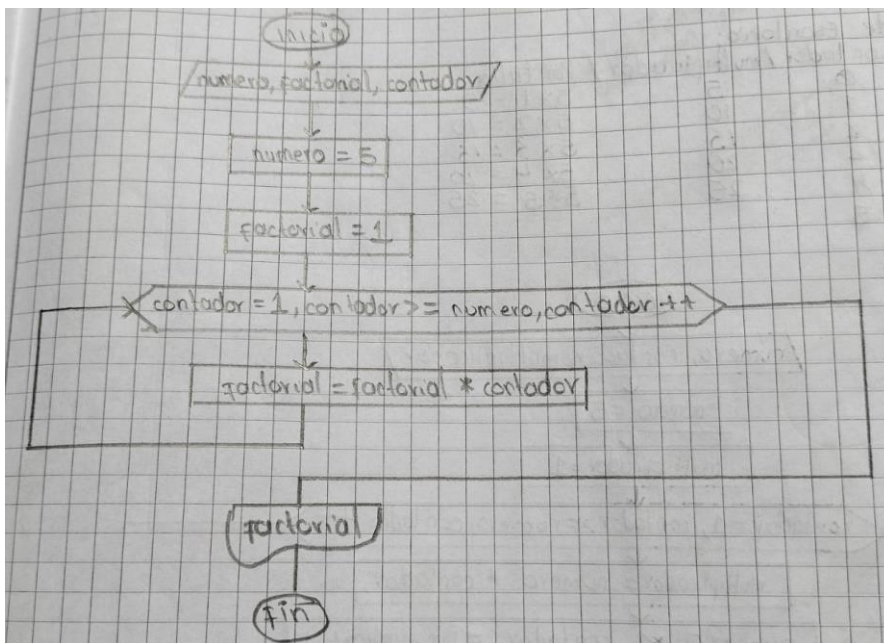 inicio
numero, factorial, contador
numero = 5
factorial = 1
contador = 1, contador >= numero, contador ++
factorial = factorial * contador
factorial
fin